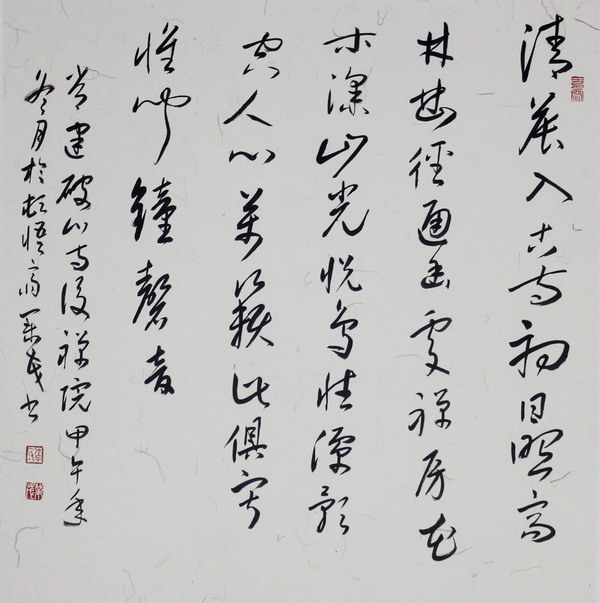 清晨入古寺初日照高
林曲徑通幽處禪房花
木深山光悦鳥性潭影
空人心萬籟此俱寂
惟聞鐘磬音
常建破山寺後禪院甲午年
冬月於頓悟齋書